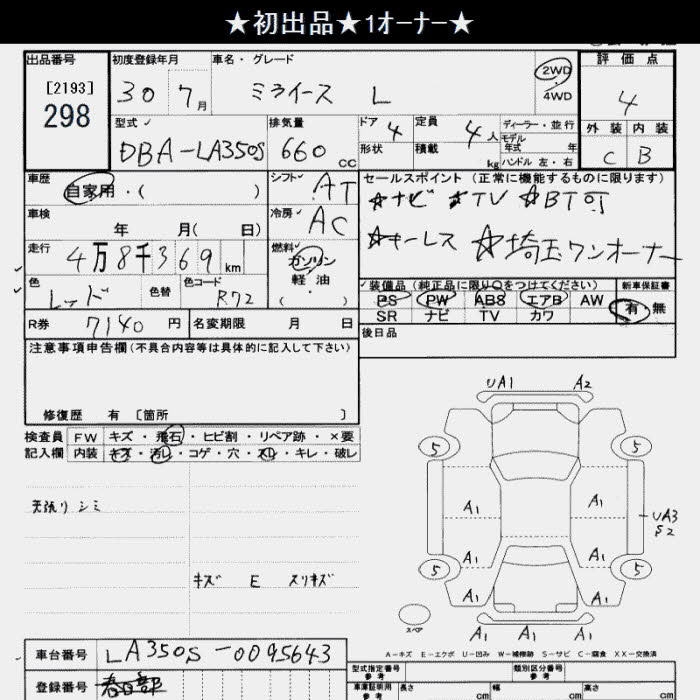 ★初出品★1オーナー★
出品番号 初度登録年月 車名・グレード 2WD 評価点
[2193] 30 7月 ミライース L 4WD 4
298
型式 排気量 ドア 4 定員 4人 ディーラー・並行 外装 内装
DBA-LA350S 660cc 形状 積載 kg モデル年式 年 C B
ハンドル 左・右
車歴 シフト AT セールスポイント(正常に機能するものに限ります)
自家用・( ) ★ナビ ★TV ★BT可
車検 冷房 AC
年 月( 日) ★キーレス ★埼玉ワンオーナー
走行 4万8千369km 燃料 ガソリン
軽油
( )
色 レッド 色替 色コード R72
装備品(純正品に限り○をつけてください) 新車保証書
PS PW ABS エアB AW 有 無
SR ナビ TV カワ
R券 7140円 名変期限 月 日 後日品
注意事項申告欄(不具合内容等は具体的に記入して下さい)
修復歴 有 [箇所 ]
検査員 FW キズ・飛石・ヒビ割・リペア跡・×要
記入欄 内装 キズ・汚レ・コゲ・穴・スレ・キレ・破レ
天張り シミ
キズ E スリキズ
UA1 A2
5 5
A1 A1
UA3
S2
A1 A1
5 5
A1 A1
スペア
A1 A1 A1
A-キズ E-エクボ U-凹み W-補修跡 S-サビ C-腐食 XX-交換済
車台番号 LA350S-0095643
型式指定番号 類別区分番号
参考 参考
登録番号 春日部
車庫証明用 長さ 幅 高さ
参考 cm cm cm